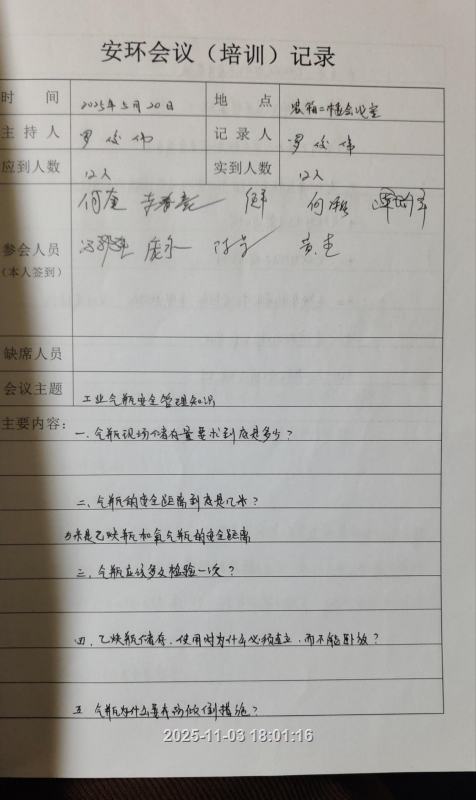 安环会议（培训）记录
时 间 2025年5月20日 地 点 装箱二楼会议室
主持人 罗俊伟 记录人 罗俊伟
应到人数 12人 实到人数 12人
何奎 何
参会人员 庞永 黄杰
（本人签到）
缺席人员
会议主题 工业气瓶安全管理知识
主要内容：
一、气瓶现场储存量要求到底是多少？
二、气瓶的安全距离到底是几米？
5米是乙炔瓶和氧气瓶的安全距离
三、气瓶应该多久检验一次？
四、乙炔瓶储存、使用时为什么必须直立，而不能卧放？
五、气瓶为什么要有防倾倒措施？
2025-11-03 18:01:16